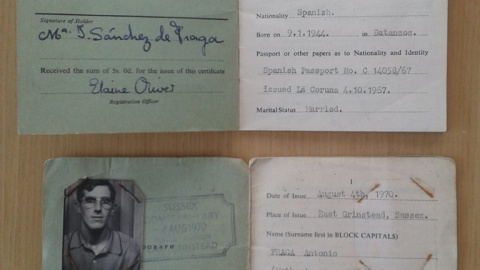 Signature of Holder
Mª. J. Sánchez de Fraga
Received the sum of 5s. 0d. for the issue of this certificate
Elaine Oliver
Registration Officer
Nationality Spanish.
Born on 9.1.1944. in Betanzos.
Passport or other papers as to Nationality and Identity
Spanish Passport No. C 14052/67
issued La Coruna 4.10.1967.
Marital Status Married.
SUSSEX
AUG 1970
GRAPH
1
Date of Issue August 4th, 1970.
Place of Issue East Grinstead, Sussex.
Name (Surname first in BLOCK CAPITALS)
FRAGA Antonio